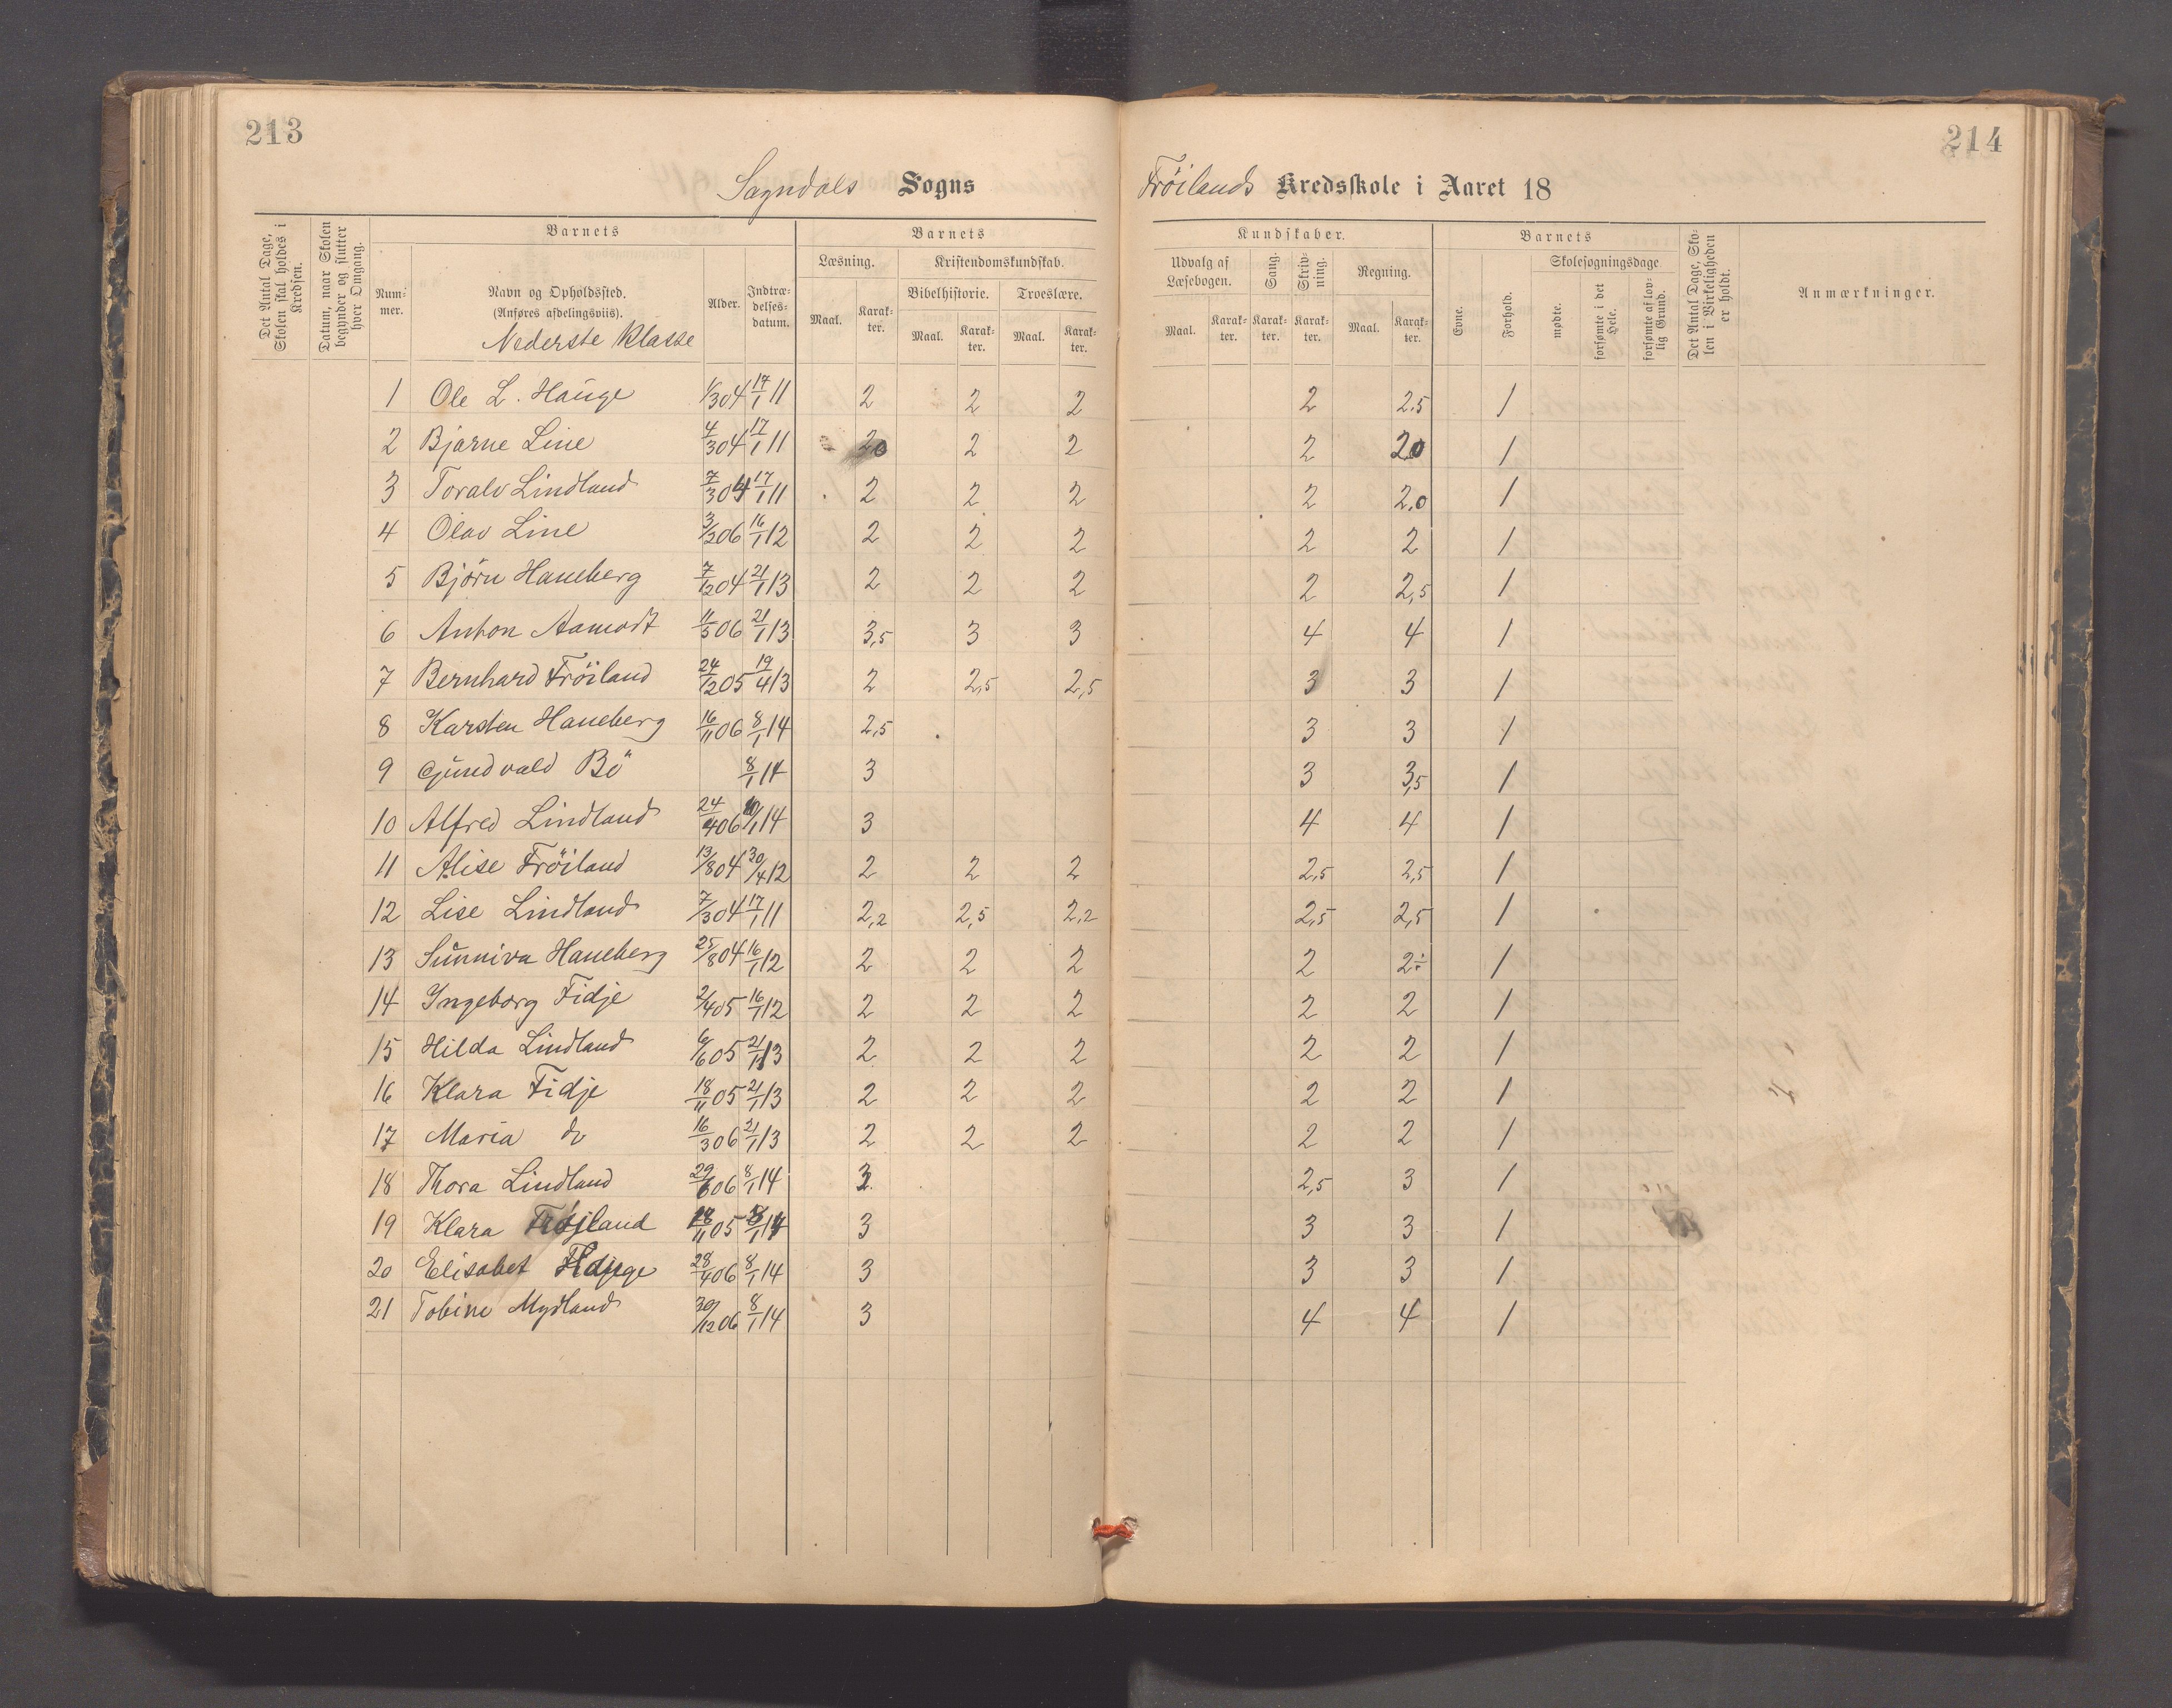 213
214
Sogndals Sogns
Fröilands Kredsskole i Aaret 18
Det Antal Dage, Skolen skal holdes i Kredsen.
Datum, naar Skolen begynder og slutter hver Omgang.
Barnets
Num- mer.
Navn og Opholdssted. (Anføres afdelingsviis).
Nederste Klasse
Alder.
Indtræ- delses- datum.
Barnets
Læsning.
Maal.
Karak- ter.
Kristendomskundskab.
Bibelhistorie.
Maal.
Karak- ter.
Troeslære.
Maal.
Karak- ter.
Kundskaber.
Udvalg af Læsebogen.
Maal.
Karak- ter.
Sang.
Karak- ter.
Skriv- ning.
Karak- ter.
Regning.
Maal.
Karak- ter.
Barnets
Evne.
Forhold.
Skolesøgningsdage
mødte.
forsømte i det Hele.
forsømte af lov- lig Grund.
Det Antal Dage, Sko- len i Virkeligheden er holdt.
Anmærkninger.
1 Ole L. Hauge 1/3 04 17/1 11 2 2 2 2 2.5 1
2 Bjarne Line 4/3 04 17/1 11 2 2 2 2,0 1
3 Toralv Lindland 7/3 04 17/1 11 2 2 2 2 2,0 1
4 Olav Line 3/3 06 16/1 12 2 2 2 2 2 1
5 Björn Haneberg 7/12 04 21/1 13 2 2 2 2 2,5 1
6 Anton Aamodt 11/5 06 21/1 13 3,5 3 3 4 4 1
7 Bernhard Fröiland 24/12 05 19/4 13 2 2,5 2,5 3 3 1
8 Karsten Haneberg 16/11 06 8/1 14 2,5 3 3 1
9 Gundvald Bö 8/1 14 3 3 3,5 1
10 Alfred Lindland 24/4 06 14 3 4 4 1
11 Alise Fröiland 13/8 04 30/4 12 2 2 2 2,5 2,5 1
12 Lise Lindland 7/3 04 17/1 11 2,2 2,5 2,2 2,5 2,5 1
13 Sunniva Haneberg 25/8 04 16/1 12 2 2 2 2 2÷ 1
14 Ingeborg Fidje 2/4 05 16/1 12 2 2 2 2 2 1
15 Hilda Lindland 6/6 05 21/1 13 2 2 2 2 2 1
16 Klara Fidje 18/11 05 21/1 13 2 2 2 2 2 1
17 Maria do 16/3 06 21/1 13 2 2 2 2 2 1
18 Thora Lindland 29/6 06 8/1 14 3 2,5 3 1
19 Klara Fröjland 05 8/1 14 3 3 3 1
20 Elisabet 28/4 06 8/1 14 3 3 3 1
21 Tobine Mydland 30/12 06 8/1 14 3 4 4 1